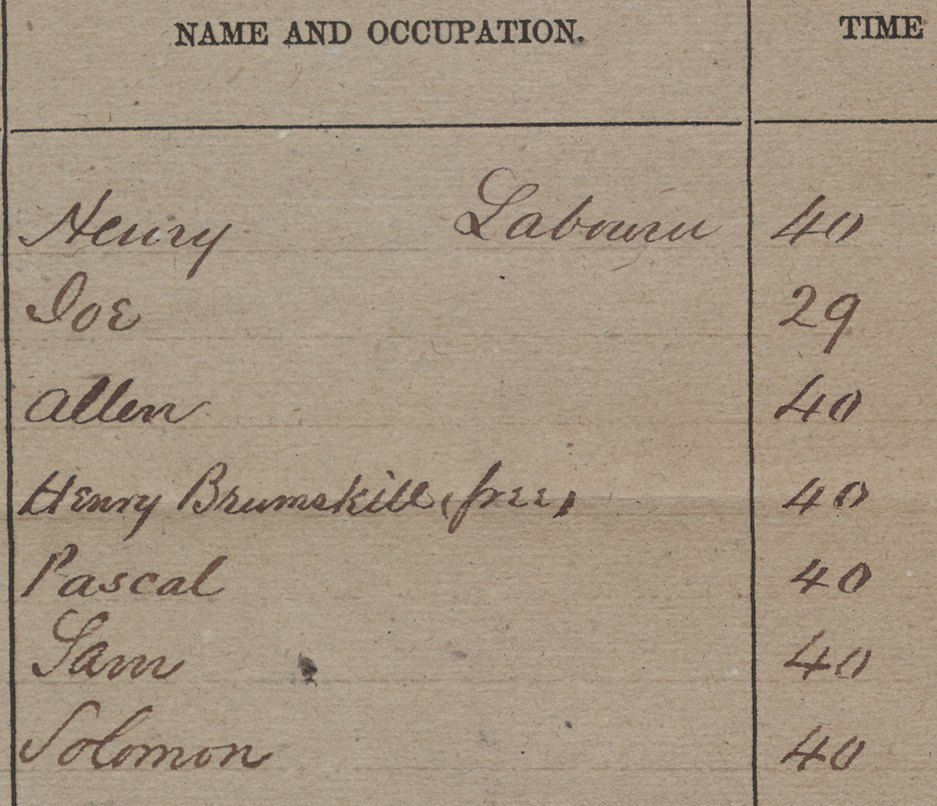 NAME AND OCCUPATION. TIME
Henry Labourer 40
Joe 29
Allen 40
Henry Brumskill (free) 40
Pascal 40
Sam 40
Solomon 40